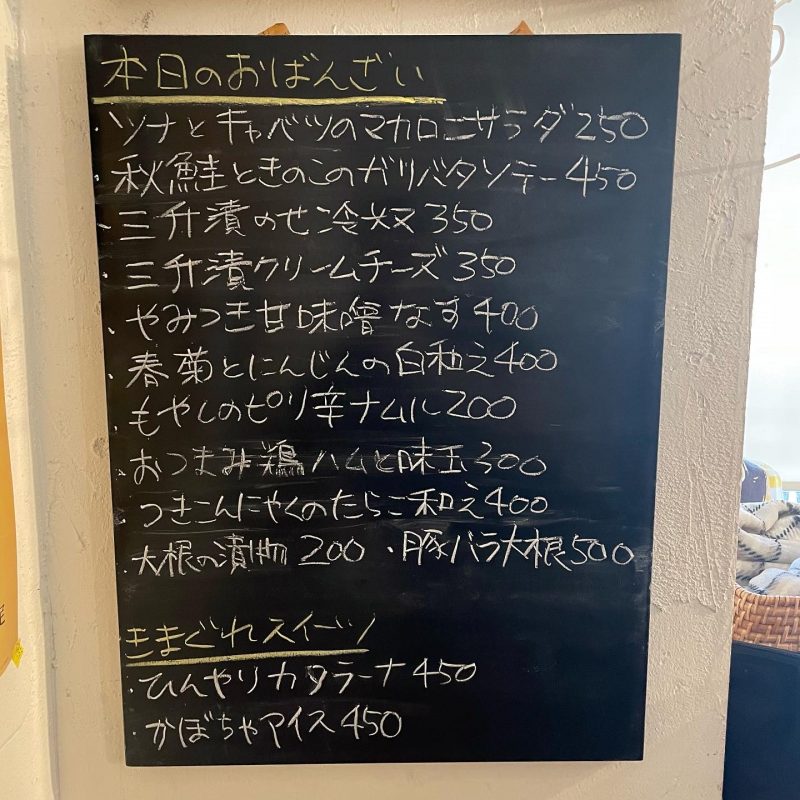 本日のおばんざい
・ツナとキャベツのマカロニサラダ250
・秋鮭ときのこのガリバタソテー450
・三升漬のせ冷奴350
・三升漬クリームチーズ350
・やみつき甘味噌なす400
・春菊とにんじんの白和え400
・もやしのピリ辛ナムル200
・おつまみ鶏ハムと味玉300
・つきこんにゃくのたらこ和え400
・大根の漬物200 ・豚バラ大根500
きまぐれスイーツ
・ひんやりカタラーナ450
・かぼちゃアイス450